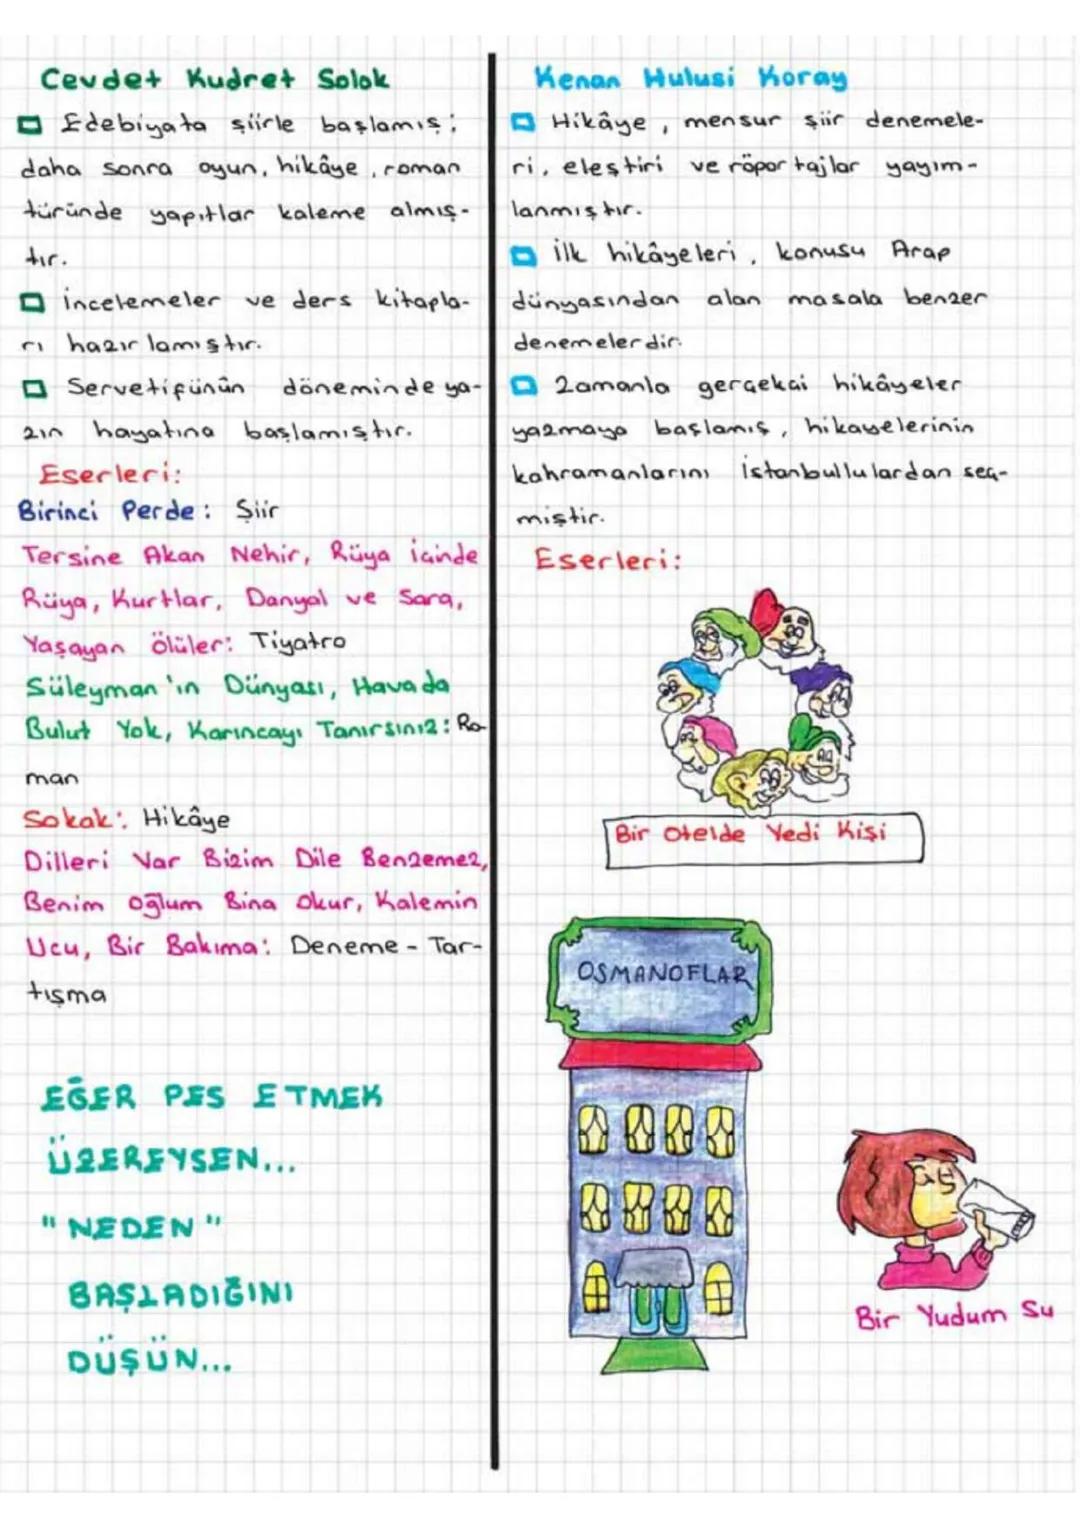 Cevdet Kudret Solok
Edebiyata şiirle başlamış;
daha sonra oyun, hikâye, roman
türünde yapıtlar kaleme almış-
tır.
İncelemeler ve ders kitapla-
rı hazırlamıştır.
Servetifünûn döneminde ya-
zın hayatına başlamıştır.
Eserleri:
Birinci Perde: Şiir
Tersine Akan Nehir, Rüya içinde
Rüya, Kurtlar, Danyal ve Sara,
Yaşayan Ölüler: Tiyatro
Süleyman'ın Dünyası, Havada
Bulut Yok, Karıncayı Tanırsınız: Ro-
man
Sokak: Hikâye
Dilleri Var Bizim Dile Benzemez,
Benim oğlum Bina Okur, Kalemin
Ucu, Bir Bakıma: Deneme - Tar-
tışma
EĞER PES ETMEK
ÜZEREYSEN...
"NEDEN"
BAŞLADIĞINI
DÜŞÜN...
Kenan Hulusi Koray
Hikâye, mensur şiir denemele-
ri, eleştiri ve röportajlar yayım-
lanmıştır.
İlk hikâyeleri, konusu Arap
dünyasından alan masala benzer
denemelerdir.
Zamanla gerçekçi hikâyeler
yazmaya başlamış, hikayelerinin
kahramanlarını İstanbullulardan seç-
miştir.
Eserleri:
Bir Otelde Yedi Kişi
OSMANOFLAR
Bir Yudum Su